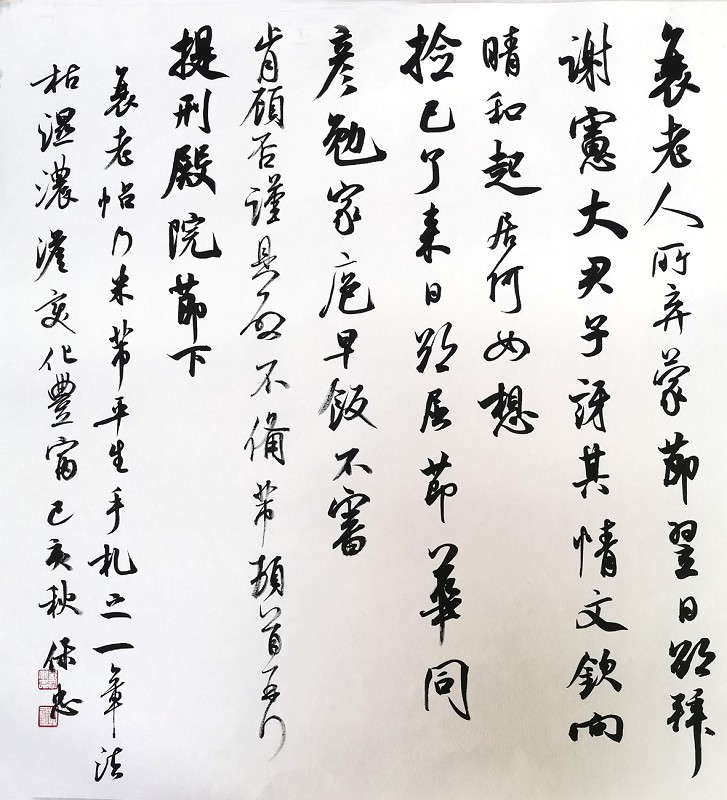 衰老人所弃蒙節翌日欲拜
謝憲大尹子訝其情文欽向
晴和起居何如想
捡已了来日欲屈節華同
彦勉家庖早飯不審
肯顧否謹具啟不備芾頓首再行
提刑殿院節下
衰老帖乃米芾平生手札之一章法
枯濕濃淡变化豐富己亥秋保忠